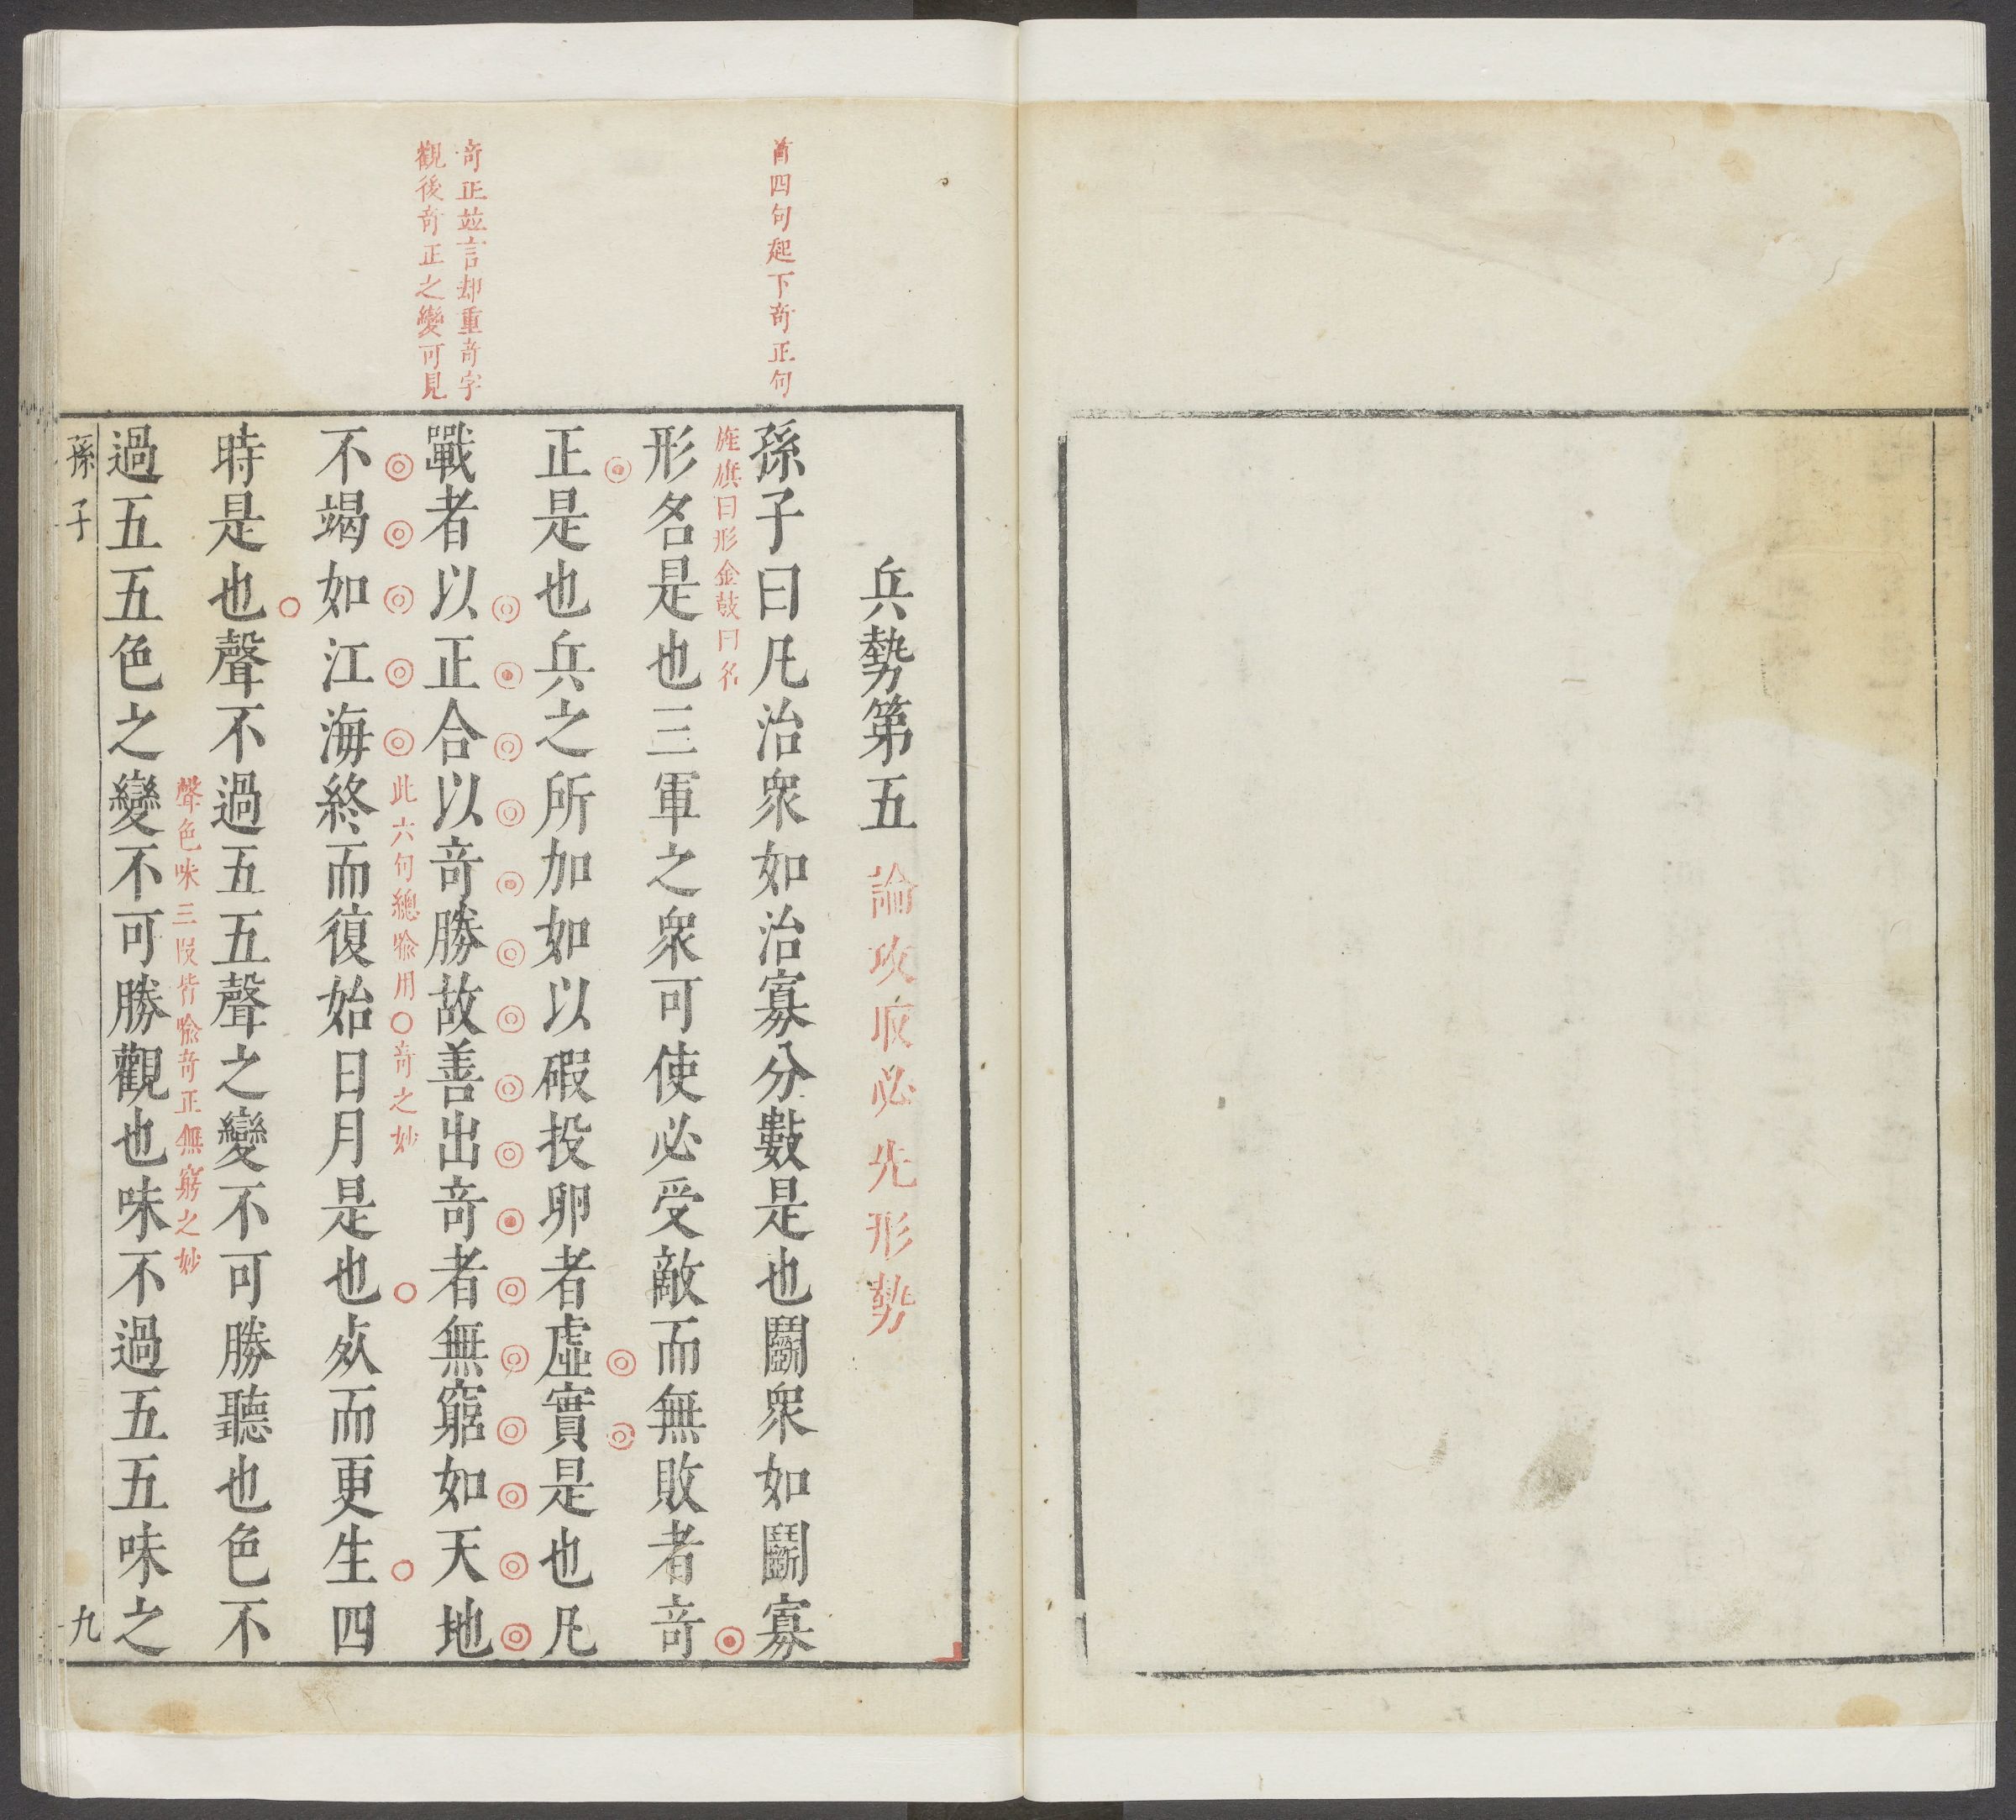 首四句起下竒正句
竒正並言却重竒字
觀後竒正之變可見
兵勢第五　論攻取必先形勢
孫子曰凡治衆如治寡分數是也鬭衆如鬭寡
旌旗曰形金鼓曰名
形名是也三軍之衆可使必受敵而無敗者竒
正是也兵之所加如以碬投卵者虛實是也凡
戰者以正合以竒勝故善出竒者無窮如天地
此六句總喻用〇竒之妙
不竭如江海終而復始日月是也死而更生四
時是也聲不過五五聲之變不可勝聽也色不
聲色味三段皆喻竒正無窮之妙
過五五色之變不可勝觀也味不過五五味之
孫子
九